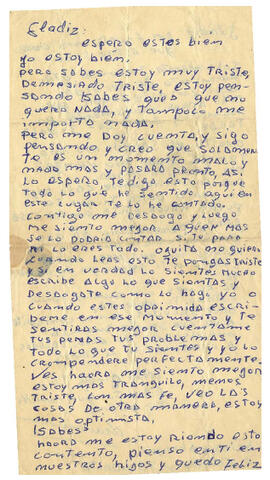 Gladiz:
espero estes bien
yo estoy bien.
pero sabes estoy muy triste,
demasiado triste, estoy pen-
sando ¡sabes que? que no
quero nada, y tampoco me
importa nada.
Pero me doy cuenta, y sigo
pensando y creo que solamen-
te es un momento malo y
nada mas y pasara pronto, así
lo espero, te digo esto porque
todo lo que he sentido aqui en
este lugar te lo he contado.
contigo me desaogo y luego
me siento megor. A quien mas
se lo podria contar si te para
mi lo eres todo. oguita no quiero
cuando leas esto te pongas triste
y si en verdad lo sientes mucho
escribe algo lo que sientas y
desaogate como lo hago yo o
cuando estes oprimida escri-
beme en ese momento y te
sentiras megor cuentame
tus penas tus problemas y
todo lo que tu sientes y yo lo
cromprendere perfectamente.
Ves haora me siento megor
estoy mas tranquilo, menos
triste, con mas fe, veo las
cosas de otra manera, estoy
mas optimista,
¡Sabes?
haora me estoy riendo esto
contento, pienso en ti en
nuestros higos y quedo Feliz